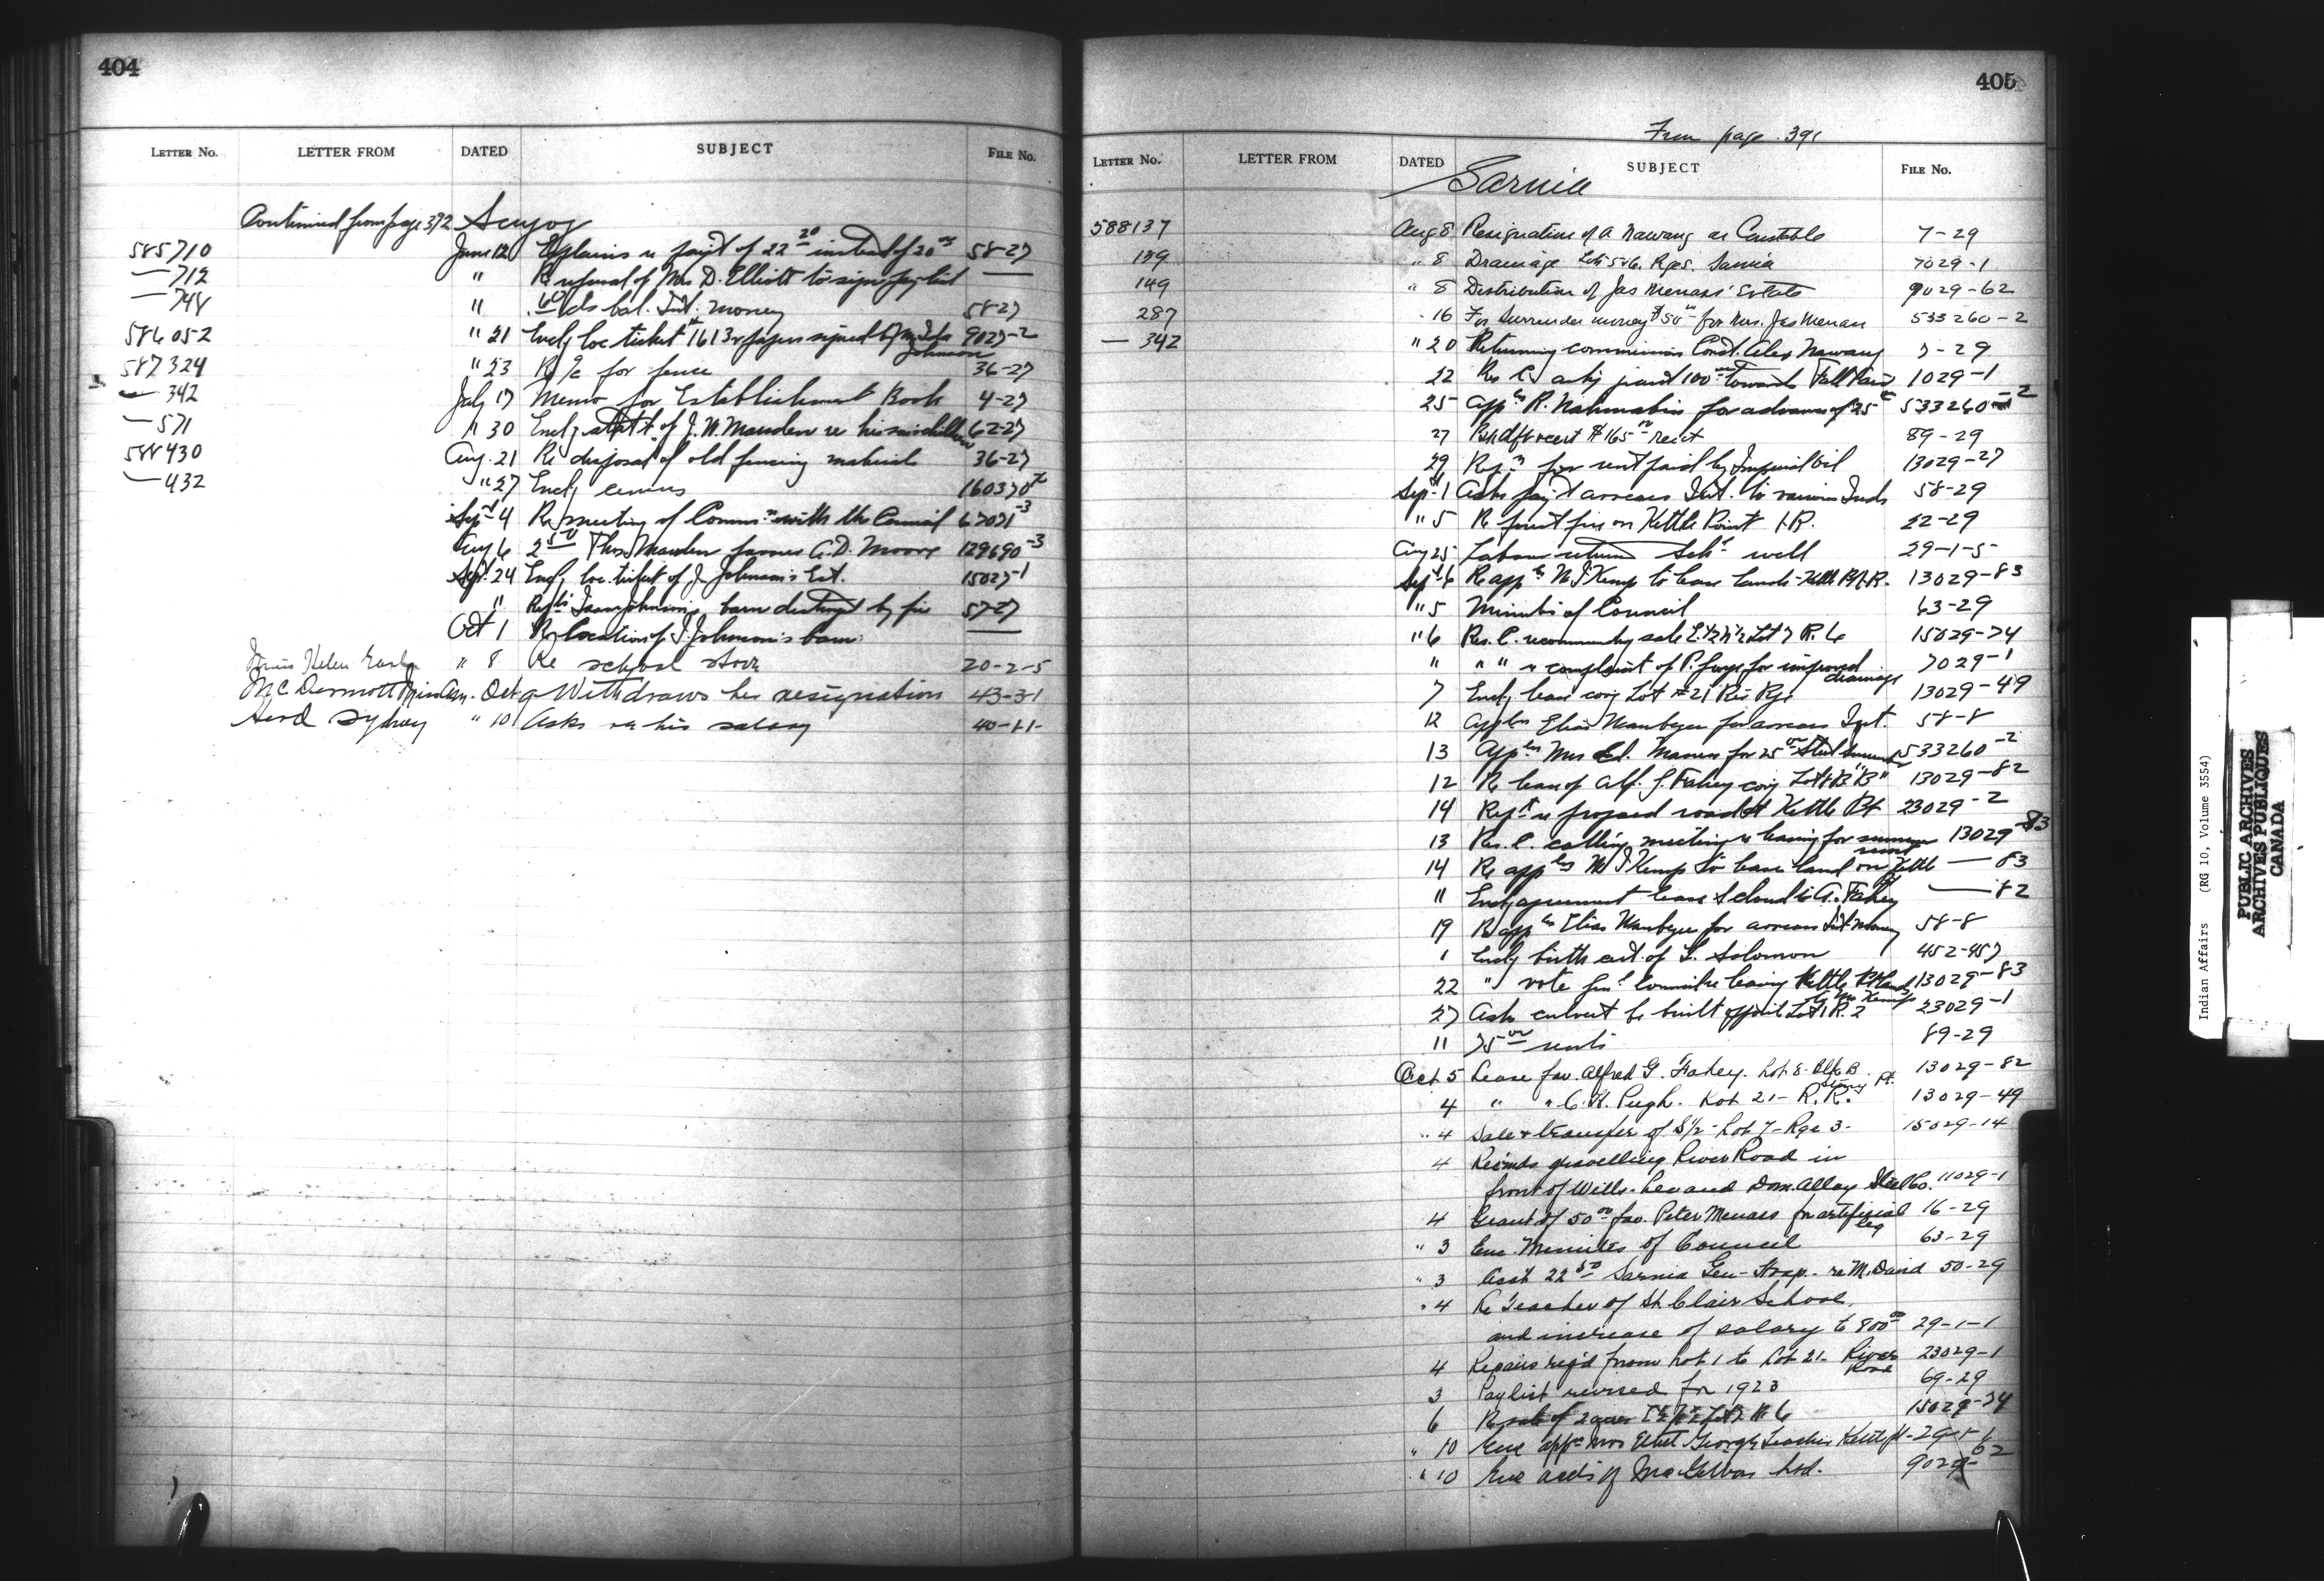 404
LETTER No. LETTER FROM DATED SUBJECT FILE No.
Continued from page 392 Scugog
585710 June 12 Explains re paym't of 22 20 instead of 20 00 58-27
— 712 " Re refusal of Mrs D. Elliott to sign pay list —
— 748 " bal. Int. money 58-27
586052 " 21 Encl'g loc ticket 1613 & papers signed by Johnson 9027-2
587324 " 23 Re a/c for fence 36-27
— 342 July 17 Memo for Establishment Book 4-27
— 571 " 30 Encl'g of J. W. Marsden re his 62-27
588430 Aug. 21 Re disposal of old fencing material 36-27
— 432 " 27 Encl'g census 160370
Sept 4 Re meeting of Comms. with the Council 67071-3
Aug 6 2 50 Thos. Marsden favour A. D. Moore 129690-3
Sept. 24 Encl'g loc. ticket of J. Johnson's Est. 15027-1
" Isaac Johnson's barn destroyed by fire 57-27
Oct 1 Re location of I. Johnson's barn —
Miss Helen " 8 Re school stove 20-2-5
McDermott Miss Ann. Oct 9 Withdraws her resignation 43-3-1
Herd Sydney " 10 Asks re his salary 40-1-1-
405
From page 391
LETTER No. LETTER FROM DATED SUBJECT FILE No.
Sarnia
588137 Aug 8 Resignation of A Nawang as Constable 7-29
139 " 8 Drainage Lots 5 & 6. Rge 5. Sarnia 7029-1
149 " 8 Distribution of Jas Menass' Estate 9029-62
287 - 16 For Surrender money $50 00 for Mrs. Jas Menass 533260-2
— 342 " 20 Returning commission Const. Alex Nawang 7-29
22 Res C. ask'g grant 100 00 towards Fall Fair 1029-1
25 App'n R. Nahmabin for advance of 25 533260-2
27 $165 00 89-29
29 for rent paid by Imperial Oil 13029-27
Sept. 1 Asks pay't arrears Int. to various Inds 58-29
" 5 Re forest fire on Kettle Point I.R. 22-29
Aug 25 Labour return Sch'l well 29-1-5-
Sept 6 Re app'n M J Kemp to lease lands - Kettle Pt I.R. 13029-83
" 5 Minutes of Council 63-29
" 6 Res. C. recommending sale E. 1/2 N 1/2 Lot 7 R. 6 15029-74
" " " re complaint of P. for improved drainage 7029-1
7 Encl'g lease cov'g Lot #21 Riv Rge 13029-49
12 App'n Elias Manbegee for arrears Int. 58-8
13 App'n Mrs Ed. Maness for 25 00 533260-2
12 Re lease of Alf. G. Fahey cov'g Lot 8 B "B" 13029-82
14 Rep't re proposed road at Kettle Pt 23029-2
13 Res. C. calling meeting re leasing for summer resort 13029-83
14 Re app'n M J Kemp to lease land on Kettle Pt — 83
11 Encl'g agreement lease & to A. Fahey — 82
19 Re app'n Elias Manbegee for arrears Int. Money 58-8
1 Encl'g birth cert of L. Solomon 452-457
22 " vote leasing Kettle Pt land to Mr Kemp 13029-83
27 Asks culvert be built opposite Lot 1 R. 2 23029-1
11 75 00 rents 89-29
Oct 5 Lease fav. Alfred G. Fahey. Lot 8- Blk B Stoney Pt. 13029-82
4 " " C. H. Pugh. Lot 21- R.R. 13029-49
" 4 Sale & transfer of S 1/2- Lot 7- Rge 3- 15029-14
4 Recmds gravelling River Road in
front of Wills- Lee and Dom. Alloy Steel Co. 11029-1
4 Grant of 50 00 fav. Peter Menass for artificial leg 16-29
" 3 Enc. Minutes of Council 63-29
" 3 Acct 22 50 Sarnia Gen- Hosp- re M. David 50-29
" 4 Re Teacher of St. Clair School,
and increase of salary to 800 00 29-1-1
4 Repairs req'd from Lot 1 to Lot 21- River Road 23029-1
3 Paylist revised for 1923 69-29
6 Re sale of 2 acres E 1/2 N 1/2 Lot 7 R 6 15029-74
" 10 Enc appn Mrs Ethel George Teacher Kettle Pt- 29-1-6
" 10 Enc Ltd. 9029-62
Indian Affairs (RG 10, Volume 3554)
PUBLIC ARCHIVES
ARCHIVES PUBLIQUES
CANADA